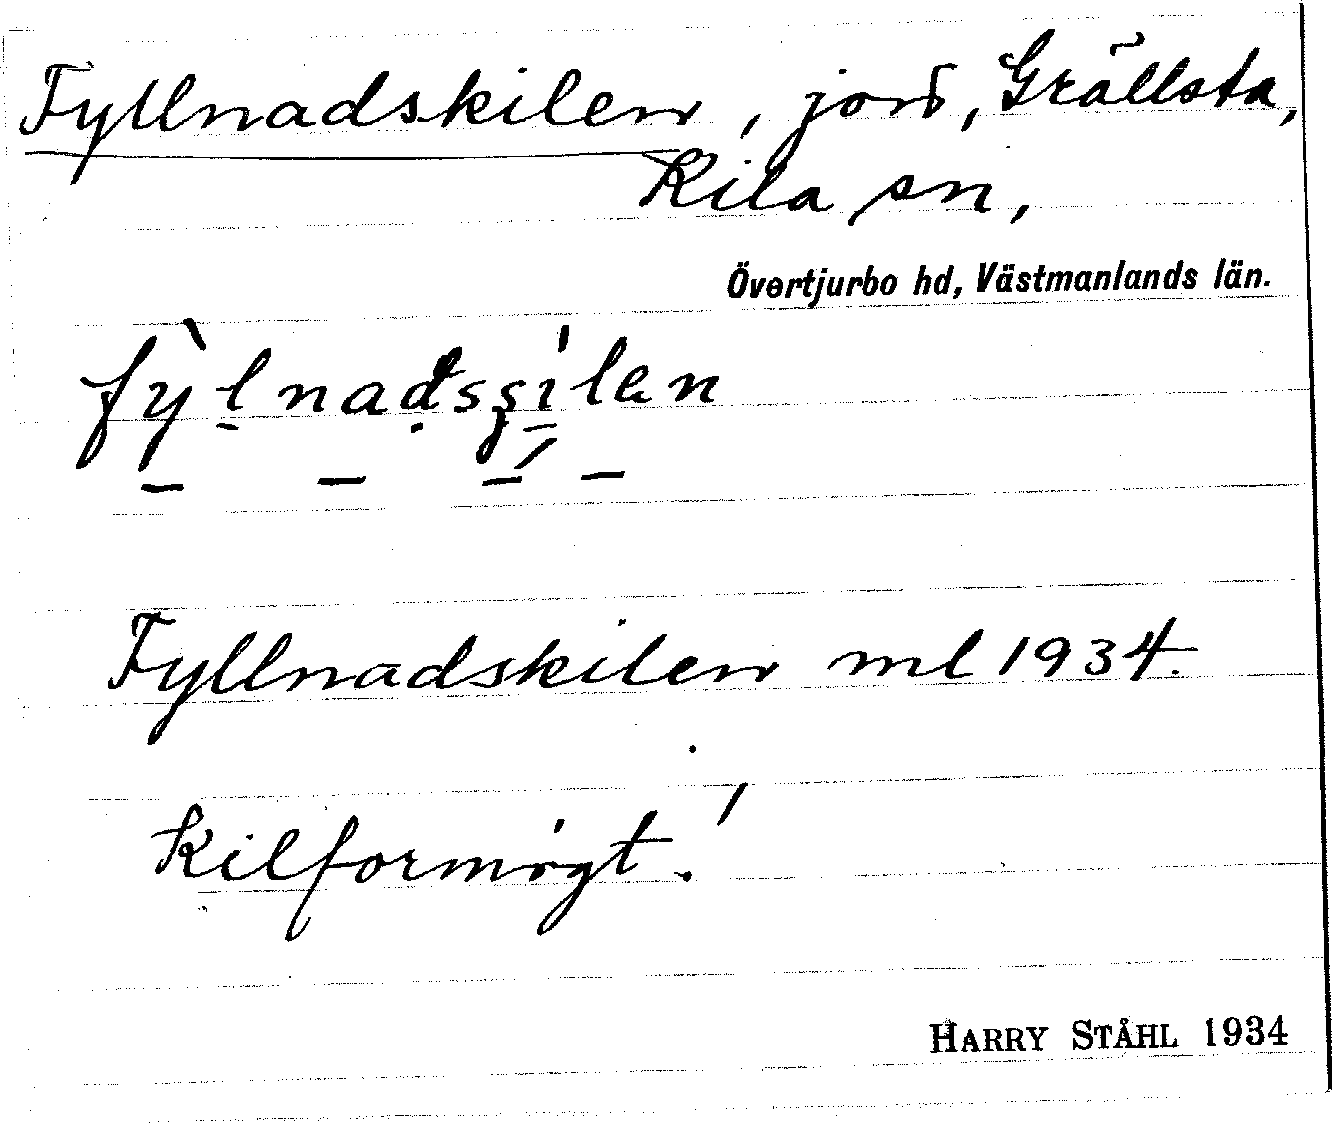 Fyllnadskilen, jord, Grällsta,
Kila sn,
Övertjurbo hd, Västmanlands län.
Fyllnadskilen ml 1934.
Kilformigt.
HARRY STÅHL 1934